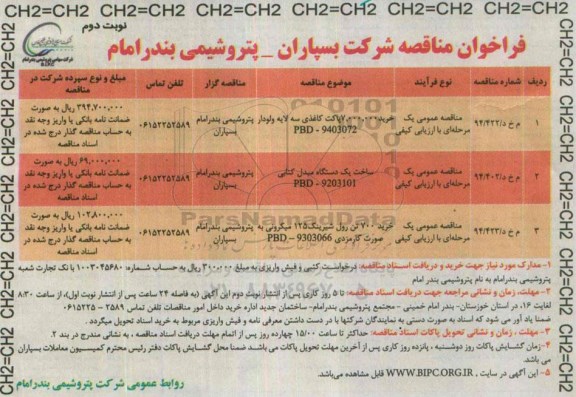 CH2=CH2 CH2=CH2 CH2=CH2 CH2=CH2 CH2=CH2 CH2=CH2
نوبت دوم
فراخوان مناقصه شرکت بسپاران _ پتروشیمی بندرامام
ردیف شماره مناقصه نوع فرآیند موضوع مناقصه مناقصه گزار تلفن تماس مبلغ و نوع سپرده شرکت در مناقصه
۱ م خ د/۹۴/۴۲۲ مناقصه عمومی یک مرحله‌ای با ارزیابی کیفی پاکت کاغذی سه لایه ولودار PBD - 9403072 پتروشیمی بندرامام بسپاران ۰۶۱۵۲۲۵۲۵۸۹ ۳۹۴,۷۰۰,۰۰۰ ریال به صورت ضمانت نامه بانکی یا واریز وجه نقد به حساب مناقصه گذار درج شده در اسناد مناقصه
۲ م خ د/۹۴/۴۰۲ مناقصه عمومی یک مرحله‌ای با ارزیابی کیفی ساخت یک دستگاه مبدل کتابی PBD - 9203101 پتروشیمی بندرامام بسپاران ۰۶۱۵۲۲۵۲۵۸۹ ۶۹,۰۰۰,۰۰۰ ریال به صورت ضمانت نامه بانکی یا واریز وجه نقد به حساب مناقصه گذار درج شده در اسناد مناقصه
۳ م خ د/۹۴/۴۲۳ مناقصه عمومی یک مرحله‌ای با ارزیابی کیفی خرید ۲۰۰ تن رول شیرینگ ۱۲۵ میکرونی به صورت کارمزدی PBD – 9303066 پتروشیمی بندرامام بسپاران ۰۶۱۵۲۲۵۲۵۸۹ ۱۰۲,۸۰۰,۰۰۰ ریال به صورت ضمانت نامه بانکی یا واریز وجه نقد به حساب مناقصه گذار درج شده در اسناد مناقصه
ParsNamadData
۱- مدارک مورد نیاز جهت خرید و دریافت اسناد مناقصه: درخواست کتبی و فیش واریزی به مبلغ ۳۰۰,۰۰۰ ریال به حساب شماره: ۱۰۰۳۰۴۵۶۸۰ بانک تجارت شعبه
پتروشیمی بندرامام به نام پتروشیمی بندر امام
۲- مهلت، زمان و نشانی مراجعه جهت دریافت اسناد مناقصه: تا ۵ روز کاری پس از انتشار نوبت دوم این آگهی (به فاصله ۲۴ ساعت پس از انتشار نوبت اول)، از ساعت ۸:۳۰
لغایت ۱۶، در استان خوزستان- بندر امام خمینی - مجتمع پتروشیمی بندرامام- ساختمان جدید اداره خرید داخل امور مناقصات، تلفن تماس ۲۵۸۹ - ۰۶۱۵۲۲۵
ضمنا یاد آور می شود که اسناد به صورت دستی به نمایندگان شرکتها با در دست داشتن معرفی نامه و فیش واریزی مربوط به خرید اسناد تحویل میگردد .
۳- مهلت، زمان و نشانی تحویل پاکات اسناد مناقصه: حداکثر تا ساعت ۱۵/۰۰ چهارده روز پس از اتمام مهلت دریافت اسناد مناقصه ، به نشانی مندرج در بند ۲.
۴- زمان گشایش پاکات روز دوشنبه ، پانزده روز کاری پس از آخرین مهلت تحویل پاکات می باشد. ضمنا محل گشایش پاکات دفتر رئیس محترم کمیسیون معاملات بسپاران
می باشد.
۵- این آگهی در سایت ، WWW.BIPC.ORG.IR قابل مشاهده می‌باشد.
روابط عمومی شرکت پتروشیمی بندرامام